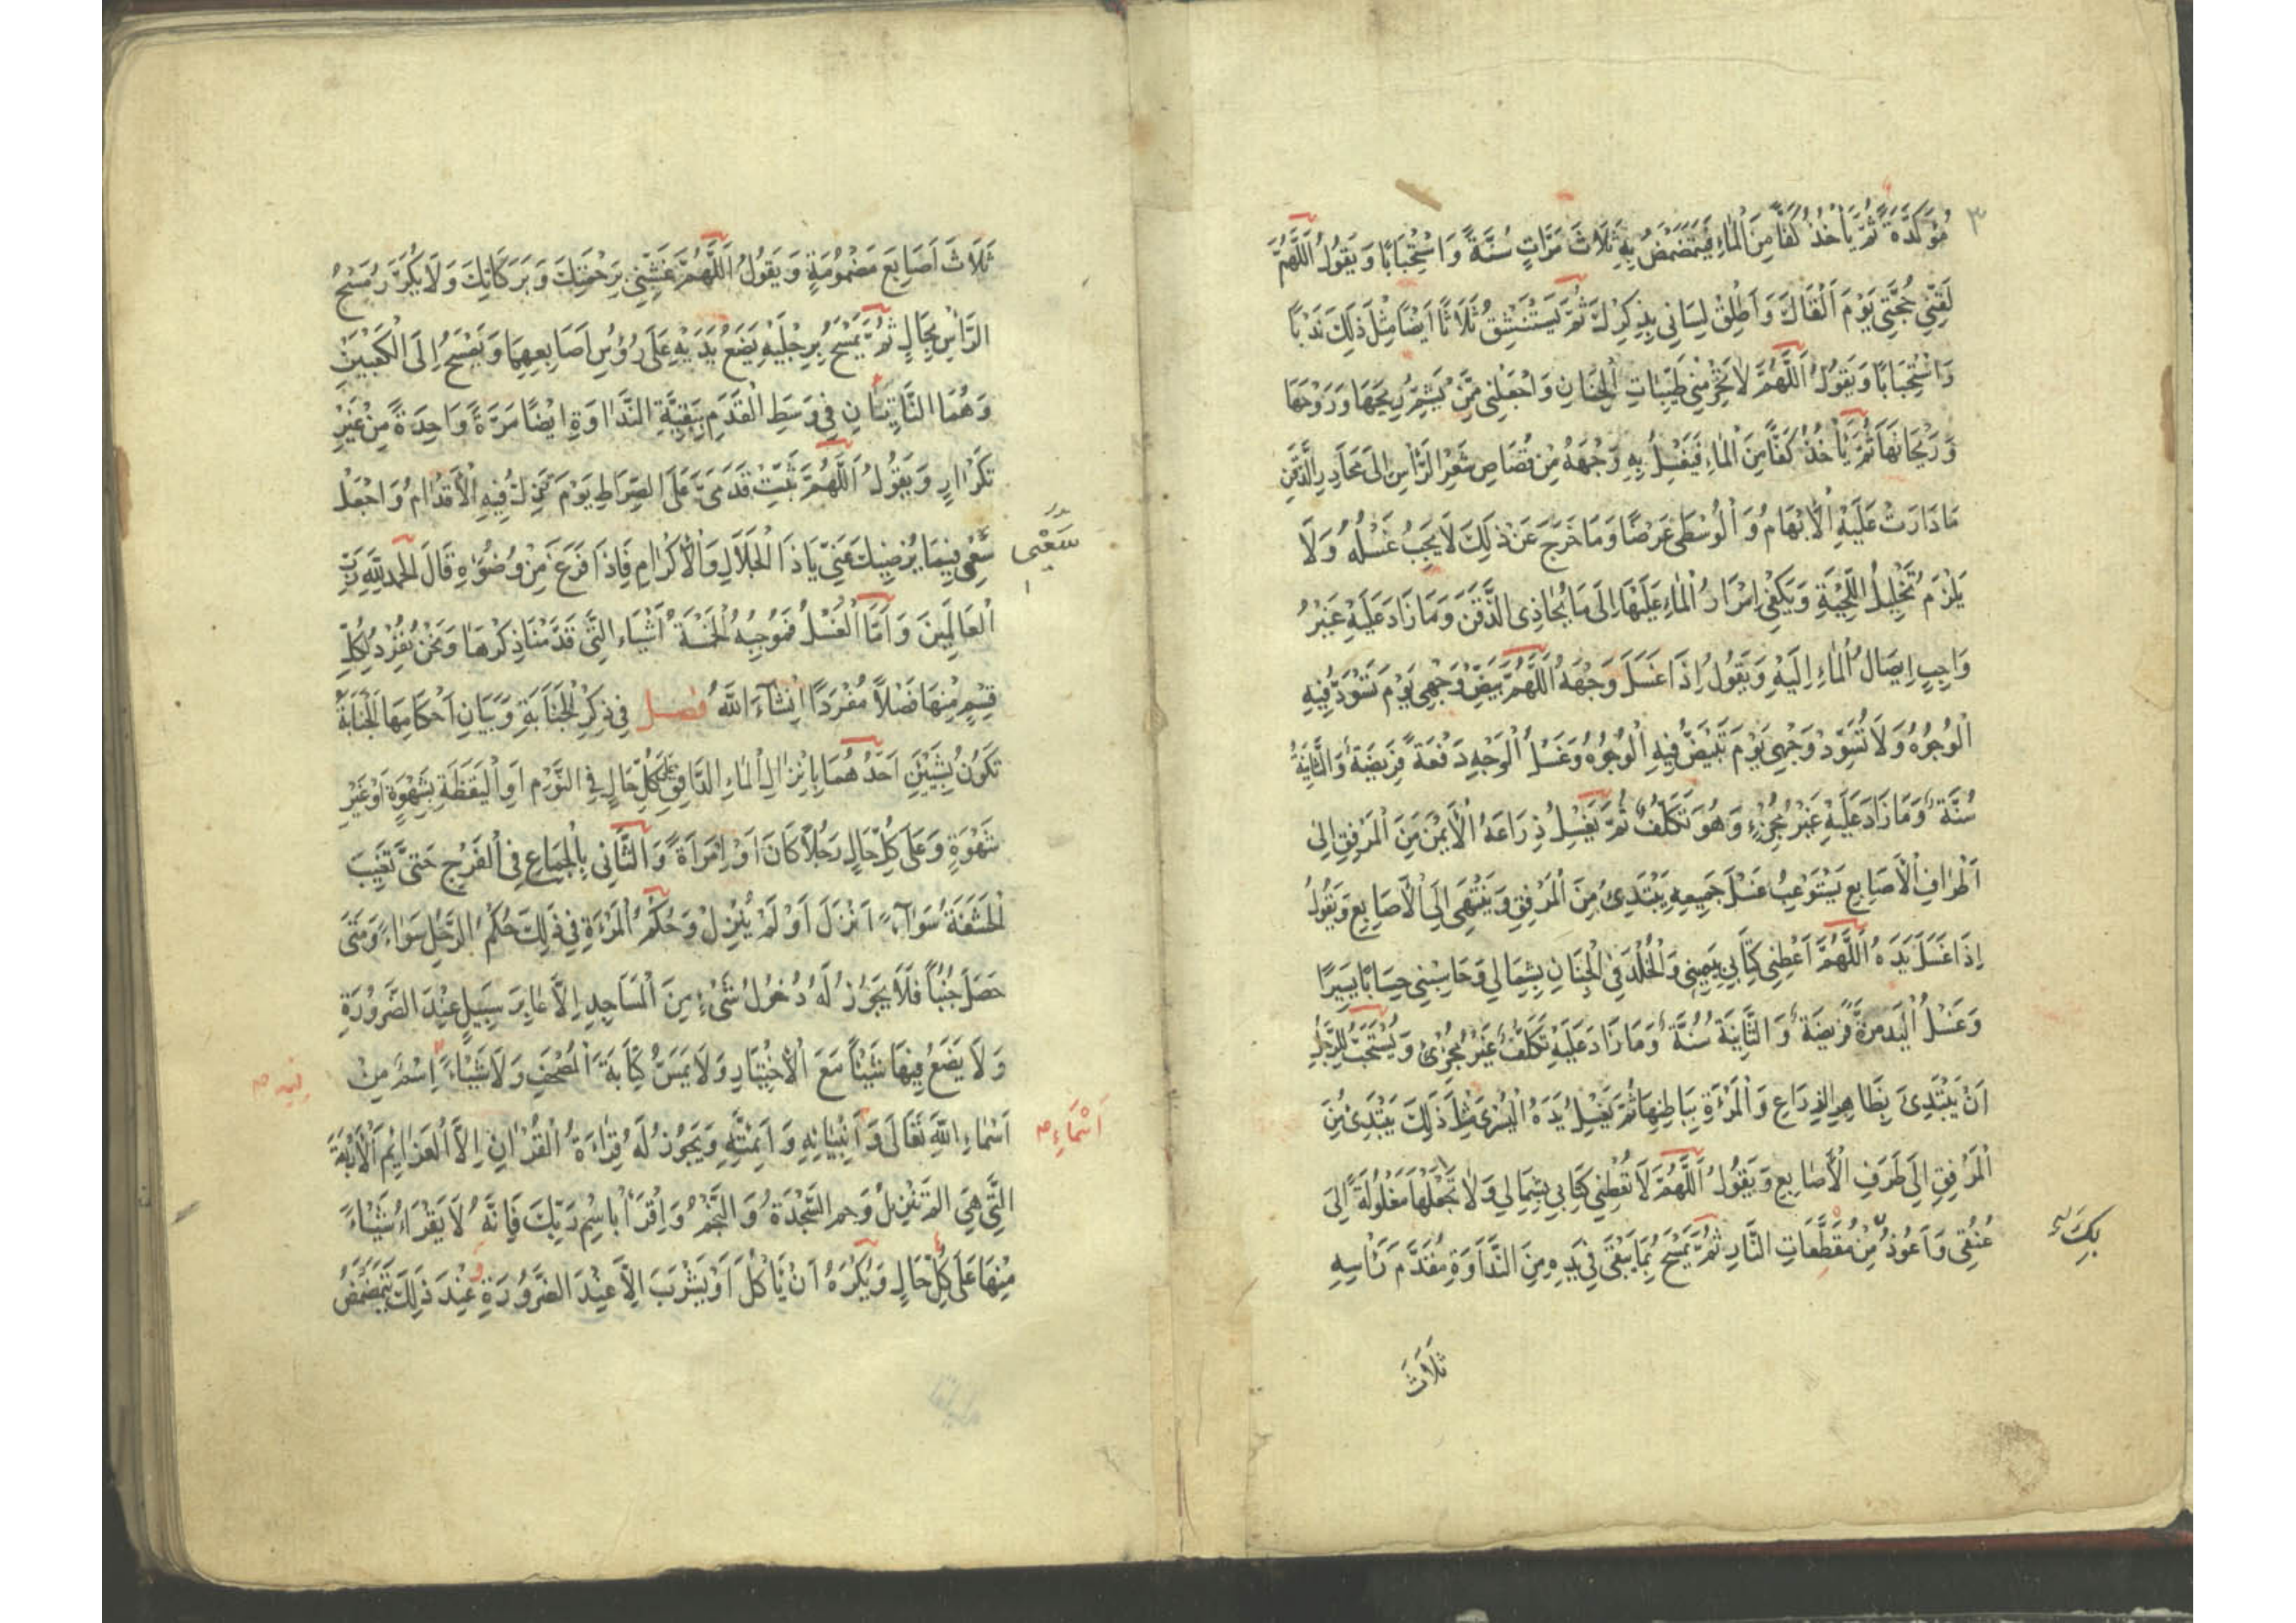 ٣
مُؤَكَّدَةً ثُمَّ يَأْخُذُ كَفًّا مِنَ الْمَاءِ فَيَتَمَضْمَضُ بِهِ ثَلَاثَ مَرَّاتٍ سُنَّةً وَاسْتِحْبَابًا وَيَقُولُ اَللَّهُمَّ
لَقِّنِّي حُجَّتِي يَوْمَ اَلْقَاكَ وَاَطْلِقْ لِسَانِي بِذِكْرِكَ ثُمَّ يَسْتَنْشِقُ ثَلَاثًا اَيْضًا مِثْلَ ذَلِكَ نَدْبًا
وَاسْتِحْبَابًا وَيَقُولُ اَللَّهُمَّ لَا تَحْرِمْنِي طَيِّبَاتِ الْجِنَانِ وَاجْعَلْنِي مِمَّنْ يَشَمُّ رِيحَهَا وَرَوْحَهَا
وَرَيْحَانَهَا ثُمَّ يَأْخُذُ كَفًّا مِنَ الْمَاءِ فَيَغْسِلُ بِهِ وَجْهَهُ مِنْ قُصَاصِ شَعْرِ الرَّأْسِ اِلَى مَحَادِرِ الذَّقَنِ
مَا دَارَتْ عَلَيْهِ الْاِبْهَامُ وَالْوُسْطَى عَرْضًا وَمَا خَرَجَ عَنْ ذَلِكَ لَا يَجِبُ غَسْلُهُ وَلَا
يَلْزَمُ تَخْلِيلُ اللِّحْيَةِ وَيَكْفِي اِمْرَارُ الْمَاءِ عَلَيْهَا اِلَى مَا يُحَاذِي الذَّقَنَ وَمَا زَادَ عَلَيْهِ غَيْرُ
وَاجِبٍ اِيصَالُ الْمَاءِ اِلَيْهِ وَيَقُولُ اِذَا غَسَلَ وَجْهَهُ اَللَّهُمَّ بَيِّضْ وَجْهِي يَوْمَ تَسْوَدُّ فِيهِ
الْوُجُوهُ وَلَا تُسَوِّدْ وَجْهِي يَوْمَ تَبْيَضُّ فِيهِ الْوُجُوهُ وَغَسْلُ الْوَجْهِ دَفْعَةً فَرِيضَةٌ وَالثَّانِيَةُ
سُنَّةٌ وَمَا زَادَ عَلَيْهِ غَيْرُ مُجْزِءٍ وَهُوَ تَكَلُّفٌ ثُمَّ يَغْسِلُ ذِرَاعَهُ الْاَيْمَنَ مِنَ الْمَرْفِقِ اِلَى
اَطْرَافِ الْاَصَابِعِ يَسْتَوْعِبُ غَسْلَ جَمِيعِهِ يَبْتَدِئُ مِنَ الْمَرْفِقِ وَيَنْتَهِي اِلَى الْاَصَابِعِ وَيَقُولُ
اِذَا غَسَلَ يَدَهُ اَللَّهُمَّ اَعْطِنِي كِتَابِي بِيَمِينِي وَالْخُلْدَ فِي الْجِنَانِ بِشِمَالِي وَحَاسِبْنِي حِسَابًا يَسِيرًا
وَغَسْلُ الْيَدِ مَرَّةً فَرِيضَةٌ وَالثَّانِيَةُ سُنَّةٌ وَمَا زَادَ عَلَيْهِ تَكَلُّفٌ غَيْرُ مُجْزِئٍ وَيُسْتَحَبُّ لِلرَّجُلِ
اَنْ يَبْتَدِئَ بِظَاهِرِ الذِّرَاعِ وَالْمَرْءَةِ بِبَاطِنِهَا ثُمَّ يَغْسِلُ يَدَهُ الْيُسْرَى مِثْلَ ذَلِكَ يَبْتَدِئُ مِنَ
الْمَرْفِقِ اِلَى طَرَفِ الْاَصَابِعِ وَيَقُولُ اَللَّهُمَّ لَا تُعْطِنِي كِتَابِي بِشِمَالِي وَلَا تَجْعَلْهَا مَغْلُولَةً اِلَى
عُنُقِي وَاَعُوذُ مِنْ مُقَطَّعَاتِ النَّارِ ثُمَّ يَمْسَحُ بِمَا يَبْقَى فِي يَدِهِ مِنَ النَّدَاوَةِ مُقَدَّمَ رَأْسِهِ
بِكَ
ثَلَاثَ
ثَلَاثَ اَصَابِعَ مَضْمُومَةٍ وَيَقُولُ اَللَّهُمَّ غَشِّنِي بِرَحْمَتِكَ وَبَرَكَاتِكَ وَلَا يُكَرِّرُ مَسْحَ
الرَّأْسِ بِحَالٍ ثُمَّ يَمْسَحُ بِرِجْلَيْهِ يَضَعُ يَدَيْهِ عَلَى رُؤُسِ اَصَابِعِهِمَا وَيَمْسَحُ اِلَى الْكَعْبَيْنِ
وَهُمَا النَّاتِيَانِ فِي وَسَطِ الْقَدَمِ بِبَقِيَّةِ النَّدَاوَةِ اَيْضًا مَرَّةً وَاحِدَةً مِنْ غَيْرِ
تَكْرَارٍ وَيَقُولُ اَللَّهُمَّ ثَبِّتْ قَدَمَيَّ عَلَى الصِّرَاطِ يَوْمَ تَزِلُّ فِيهِ الْاَقْدَامُ وَاجْعَلْ
سَعْيِي فِيمَا يُرْضِيكَ عَنِّي يَا ذَا الْجَلَالِ وَالْاِكْرَامِ فَاِذَا فَرَغَ مِنْ وُضُوءِهِ قَالَ الْحَمْدُ لِلَّهِ رَبِّ
سَعْيِي
الْعَالَمِينَ وَاَمَّا الْغُسْلُ فَمُوجِبُهُ الْخَمْسَةُ اَشْيَاءَ الَّتِي قَدَّمْنَا ذِكْرَهَا وَنَحْنُ نُفْرِدُ لِكُلِّ
قِسْمٍ مِنْهَا فَصْلًا مُفْرَدًا اِنْشَاءَ اللَّهُ فصل فِي ذِكْرِ الْجَنَابَةِ وَبَيَانِ اَحْكَامِهَا الْجَنَابَةُ
تَكُونُ بِشَيْئَيْنِ اَحَدُهُمَا بِاِنْزَالِ الْمَاءِ الدَّافِقِ عَلَى كُلِّ حَالٍ فِي النَّوْمِ اَوِ الْيَقَظَةِ بِشَهْوَةٍ اَوْ غَيْرِ
شَهْوَةٍ وَعَلَى كُلِّ حَالٍ رَجُلًا كَانَ اَوْ اِمْرَاَةً وَالثَّانِي بِالْجِمَاعِ فِي الْفَرْجِ حَتَّى تَغِيبَ
الْحَشَفَةُ سَوَاءً اَنْزَلَ اَوْ لَمْ يُنْزِلْ وَحُكْمُ الْمَرْءَةِ فِي ذَلِكَ حُكْمُ الرَّجُلِ سَوَاءً وَمَتَى
حَصَلَ جُنُبًا فَلَا يَجُوزُ لَهُ دُخُولُ شَيْءٍ مِنَ الْمَسَاجِدِ اِلَّا عَابِرَ سَبِيلٍ عِنْدَ الضَّرُورَةِ
وَلَا يَضَعُ فِيهَا شَيْئًا مَعَ الْاِخْتِيَارِ وَلَا يَمَسُّ كِتَابَةَ الْمُصْحَفِ وَلَا شَيْئًا اِسْمٌ مِنْ
فيه
اَسْمَاءِ اللَّهِ تَعَالَى وَاَنْبِيَائِهِ وَاَئِمَّتِهِ وَيَجُوزُ لَهُ قِرَاءَةُ الْقُرْآنِ اِلَّا الْعَزَائِمَ الْاَرْبَعَةَ
اَسْمَاءِ
الَّتِي هِيَ الم تَنْزِيلُ وَحم السَّجْدَةُ وَالنَّجْمُ وَاِقْرَأْ بِاسْمِ رَبِّكَ فَاِنَّهُ لَا يَقْرَاُ شَيْئًا
مِنْهَا عَلَى كُلِّ حَالٍ وَيُكْرَهُ اَنْ يَأْكُلَ اَوْ يَشْرَبَ اِلَّا عِنْدَ الضَّرُورَةِ وَعِنْدَ ذَلِكَ يَتَمَضْمَضُ